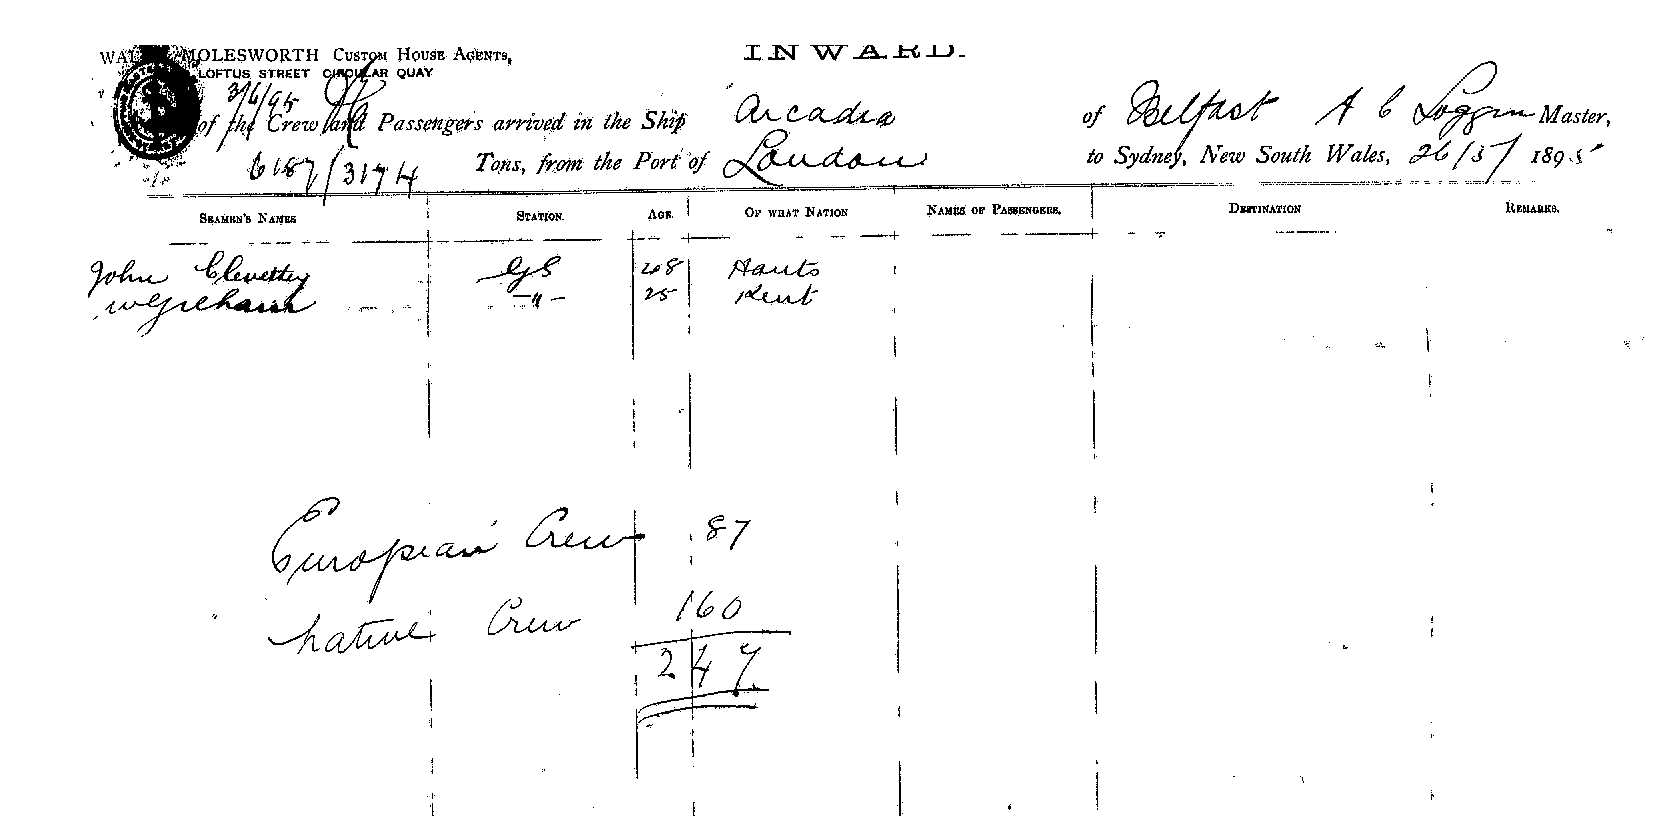 MOLESWORTH CUSTOM HOUSE AGENTS,
INWARD.
LOFTUS STREET CIRCULAR QUAY
3/6/95
of the Crew and Passengers arrived in the Ship Arcadia of Belfast A C Loggin Master,
6187/3174 Tons, from the Port of London to Sydney, New South Wales, 26/5/ 1895
SEAMEN'S NAMES STATION. AGE. OF WHAT NATION NAMES OF PASSENGERS. DESTINATION REMARKS.
John GS 28 Hants
-"- 25 Kent
European Crew 87
Native Crew 160
247